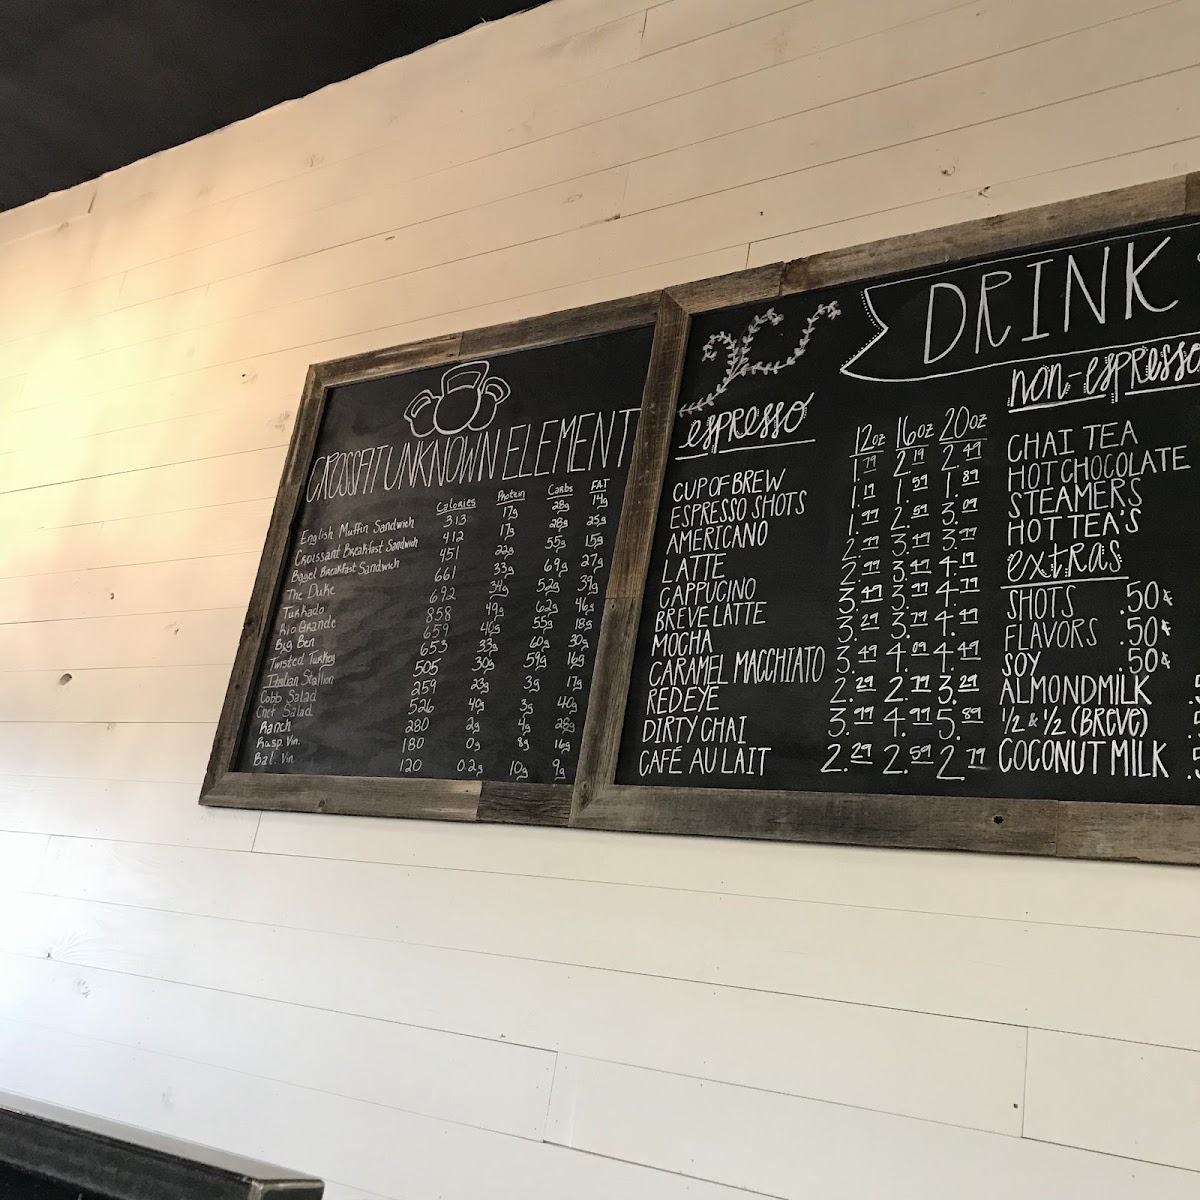 CROSSFIT UNKNOWN ELEMENT
Calories Protein Carbs FAT
English Muffin Sandwich 313 17g 28g 14g
Croissant Breakfast Sandwich 412 17g 28g 25g
Bagel Breakfast Sandwich 451 22g 55g 15g
The Duke 661 33g 69g 27g
Turkado 692 34g 52g 39g
Rio Grande 858 49g 62g 46g
Big Ben 659 46g 55g 18g
Twisted Turkey 653 33g 60g 30g
Italian Stallion 505 30g 59g 16g
Cobb Salad 259 23g 3g 17g
Chef Salad 526 40g 3g 40g
Ranch 280 2g 4g 28g
Rasp. Vin. 180 0g 8g 16g
Bal. Vin 120 0.2g 10g 9g
DRINK
espresso
12oz 16oz 20oz
CUP OF BREW 1.79 2.19 2.49
ESPRESSO SHOTS 1.19 1.59 1.89
AMERICANO 1.99 2.59 3.09
LATTE 2.99 3.49 3.99
CAPPUCINO 2.99 3.49 4.19
BREVE LATTE 3.49 3.99 4.79
MOCHA 3.29 3.79 4.49
CARAMEL MACCHIATO 3.49 4.09 4.49
REDEYE 2.29 2.79 3.29
DIRTY CHAI 3.99 4.99 5.89
CAFÉ AU LAIT 2.29 2.59 2.79
non-espresso
CHAI TEA
HOT CHOCOLATE
STEAMERS
HOT TEA'S
extras
SHOTS .50¢
FLAVORS .50¢
SOY .50¢
ALMONDMILK
1/2 & 1/2 (BREVE)
COCONUT MILK